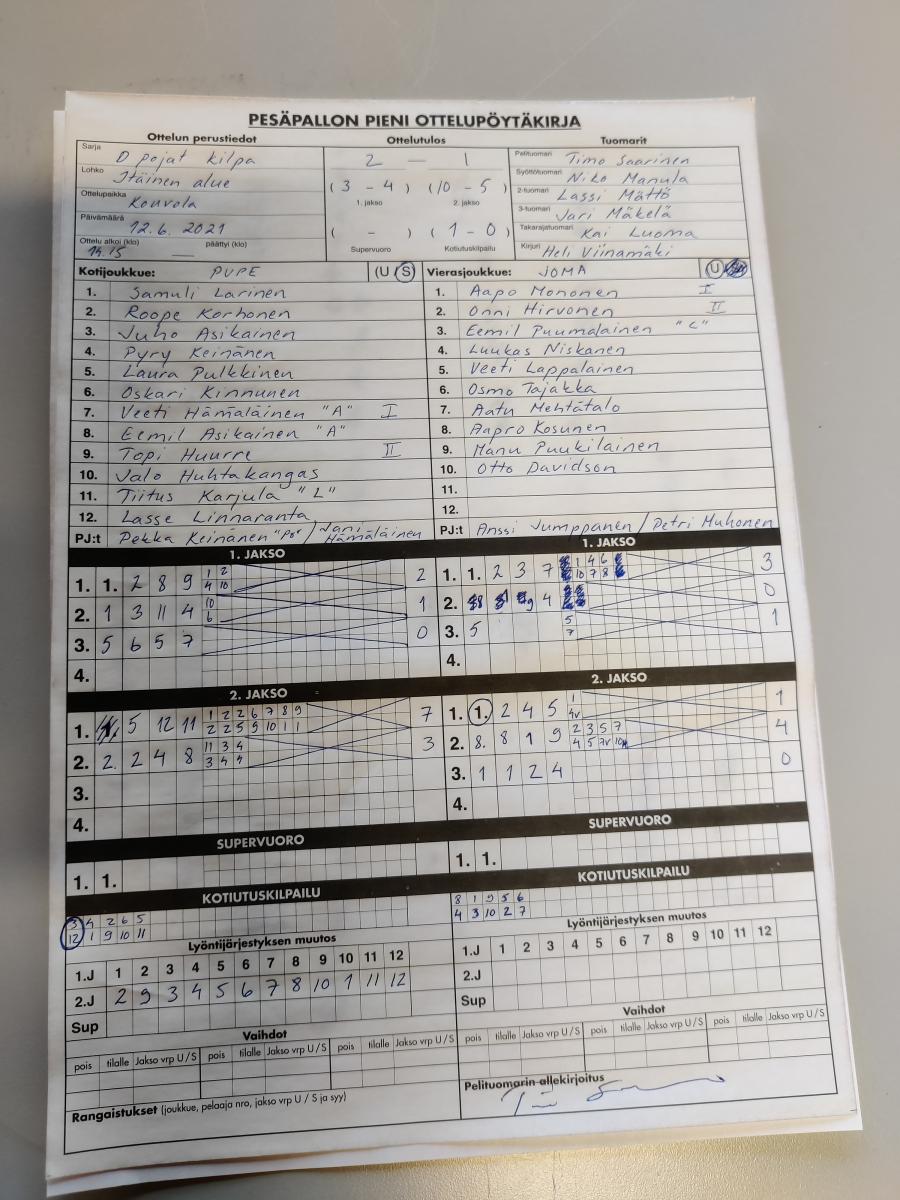 PESÄPALLON PIENI OTTELUPÖYTÄKIRJA
Ottelun perustiedot Ottelutulos Tuomarit
Sarja D pojat kilpa
Lohko Itäinen alue
Ottelupaikka Kouvola
Päivämäärä 12.6. 2021
Ottelu alkoi (klo) 14.15 päättyi (klo) —
2 — 1
(3 - 4) (10 - 5)
1. jakso 2. jakso
( - ) (1 - 0)
Supervuoro Kotiutuskilpailu
Pelituomari Timo Saarinen
Syöttötuomari Niko Manula
2-tuomari Lassi Mättö
3-tuomari Jari Mäkelä
Takarajatuomari Kai Luoma
Kirjuri Heli Viinamäki
Kotijoukkue: PUPE (U S)
1. Samuli Larinen
2. Roope Korhonen
3. Juho Asikainen
4. Pyry Keinänen
5. Laura Pulkkinen
6. Oskari Kinnunen
7. Veeti Hämäläinen "A" I
8. Eemil Asikainen "A"
9. Topi Huurre II
10. Valo Huhtakangas
11. Tiitus Karjula "L"
12. Lasse Linnaranta
PJ:t Pekka Keinänen / Jani Hämäläinen
Vierasjoukkue: JOMA (U
1. Aapo Mononen I
2. Onni Hirvonen II
3. Eemil Puumalainen "L"
4. Luukas Niskanen
5. Veeti Lappalainen
6. Osmo Tajakka
7. Aatu Mehtätalo
8. Aapro Kosunen
9. Manu Puukilainen
10. Otto Davidson
11.
12.
PJ:t Anssi Jumppanen / Petri Muhonen
1. JAKSO
1. 1. 2 8 9 1 2 2
4 10
2. 1 3 11 4 10 1
6
3. 5 6 5 7 0
4.
1. JAKSO
1. 1. 2 3 7 1 4 6 3
10 7 8
2. 9 4 0
3. 5 5 1
7
4.
2. JAKSO
1. 5 12 11 1 2 2 6 7 8 9 7
2 2 5 9 10 1 1
2. 2. 2 4 8 11 3 4 3
3 4 4
3.
4.
2. JAKSO
1. 1. 2 4 5 1 1
4v
2. 8. 8 1 9 2 3 5 7 4
4 5 7v
3. 1 1 2 4 0
4.
SUPERVUORO
1. 1.
SUPERVUORO
1. 1.
KOTIUTUSKILPAILU
3 4 2 6 5
12 1 9 10 11
KOTIUTUSKILPAILU
8 1 9 5 6
4 3 10 2 7
Lyöntijärjestyksen muutos
1.J 1 2 3 4 5 6 7 8 9 10 11 12
2.J 2 9 3 4 5 6 7 8 10 1 11 12
Sup
Lyöntijärjestyksen muutos
1.J 1 2 3 4 5 6 7 8 9 10 11 12
2.J
Sup
Vaihdot
pois tilalle Jakso vrp U/S pois tilalle Jakso vrp U/S pois tilalle Jakso vrp U/S
Vaihdot
pois tilalle Jakso vrp U/S pois tilalle Jakso vrp U/S pois tilalle Jakso vrp U/S
Rangaistukset (joukkue, pelaaja nro, jakso vrp U / S ja syy)
Pelituomarin allekirjoitus